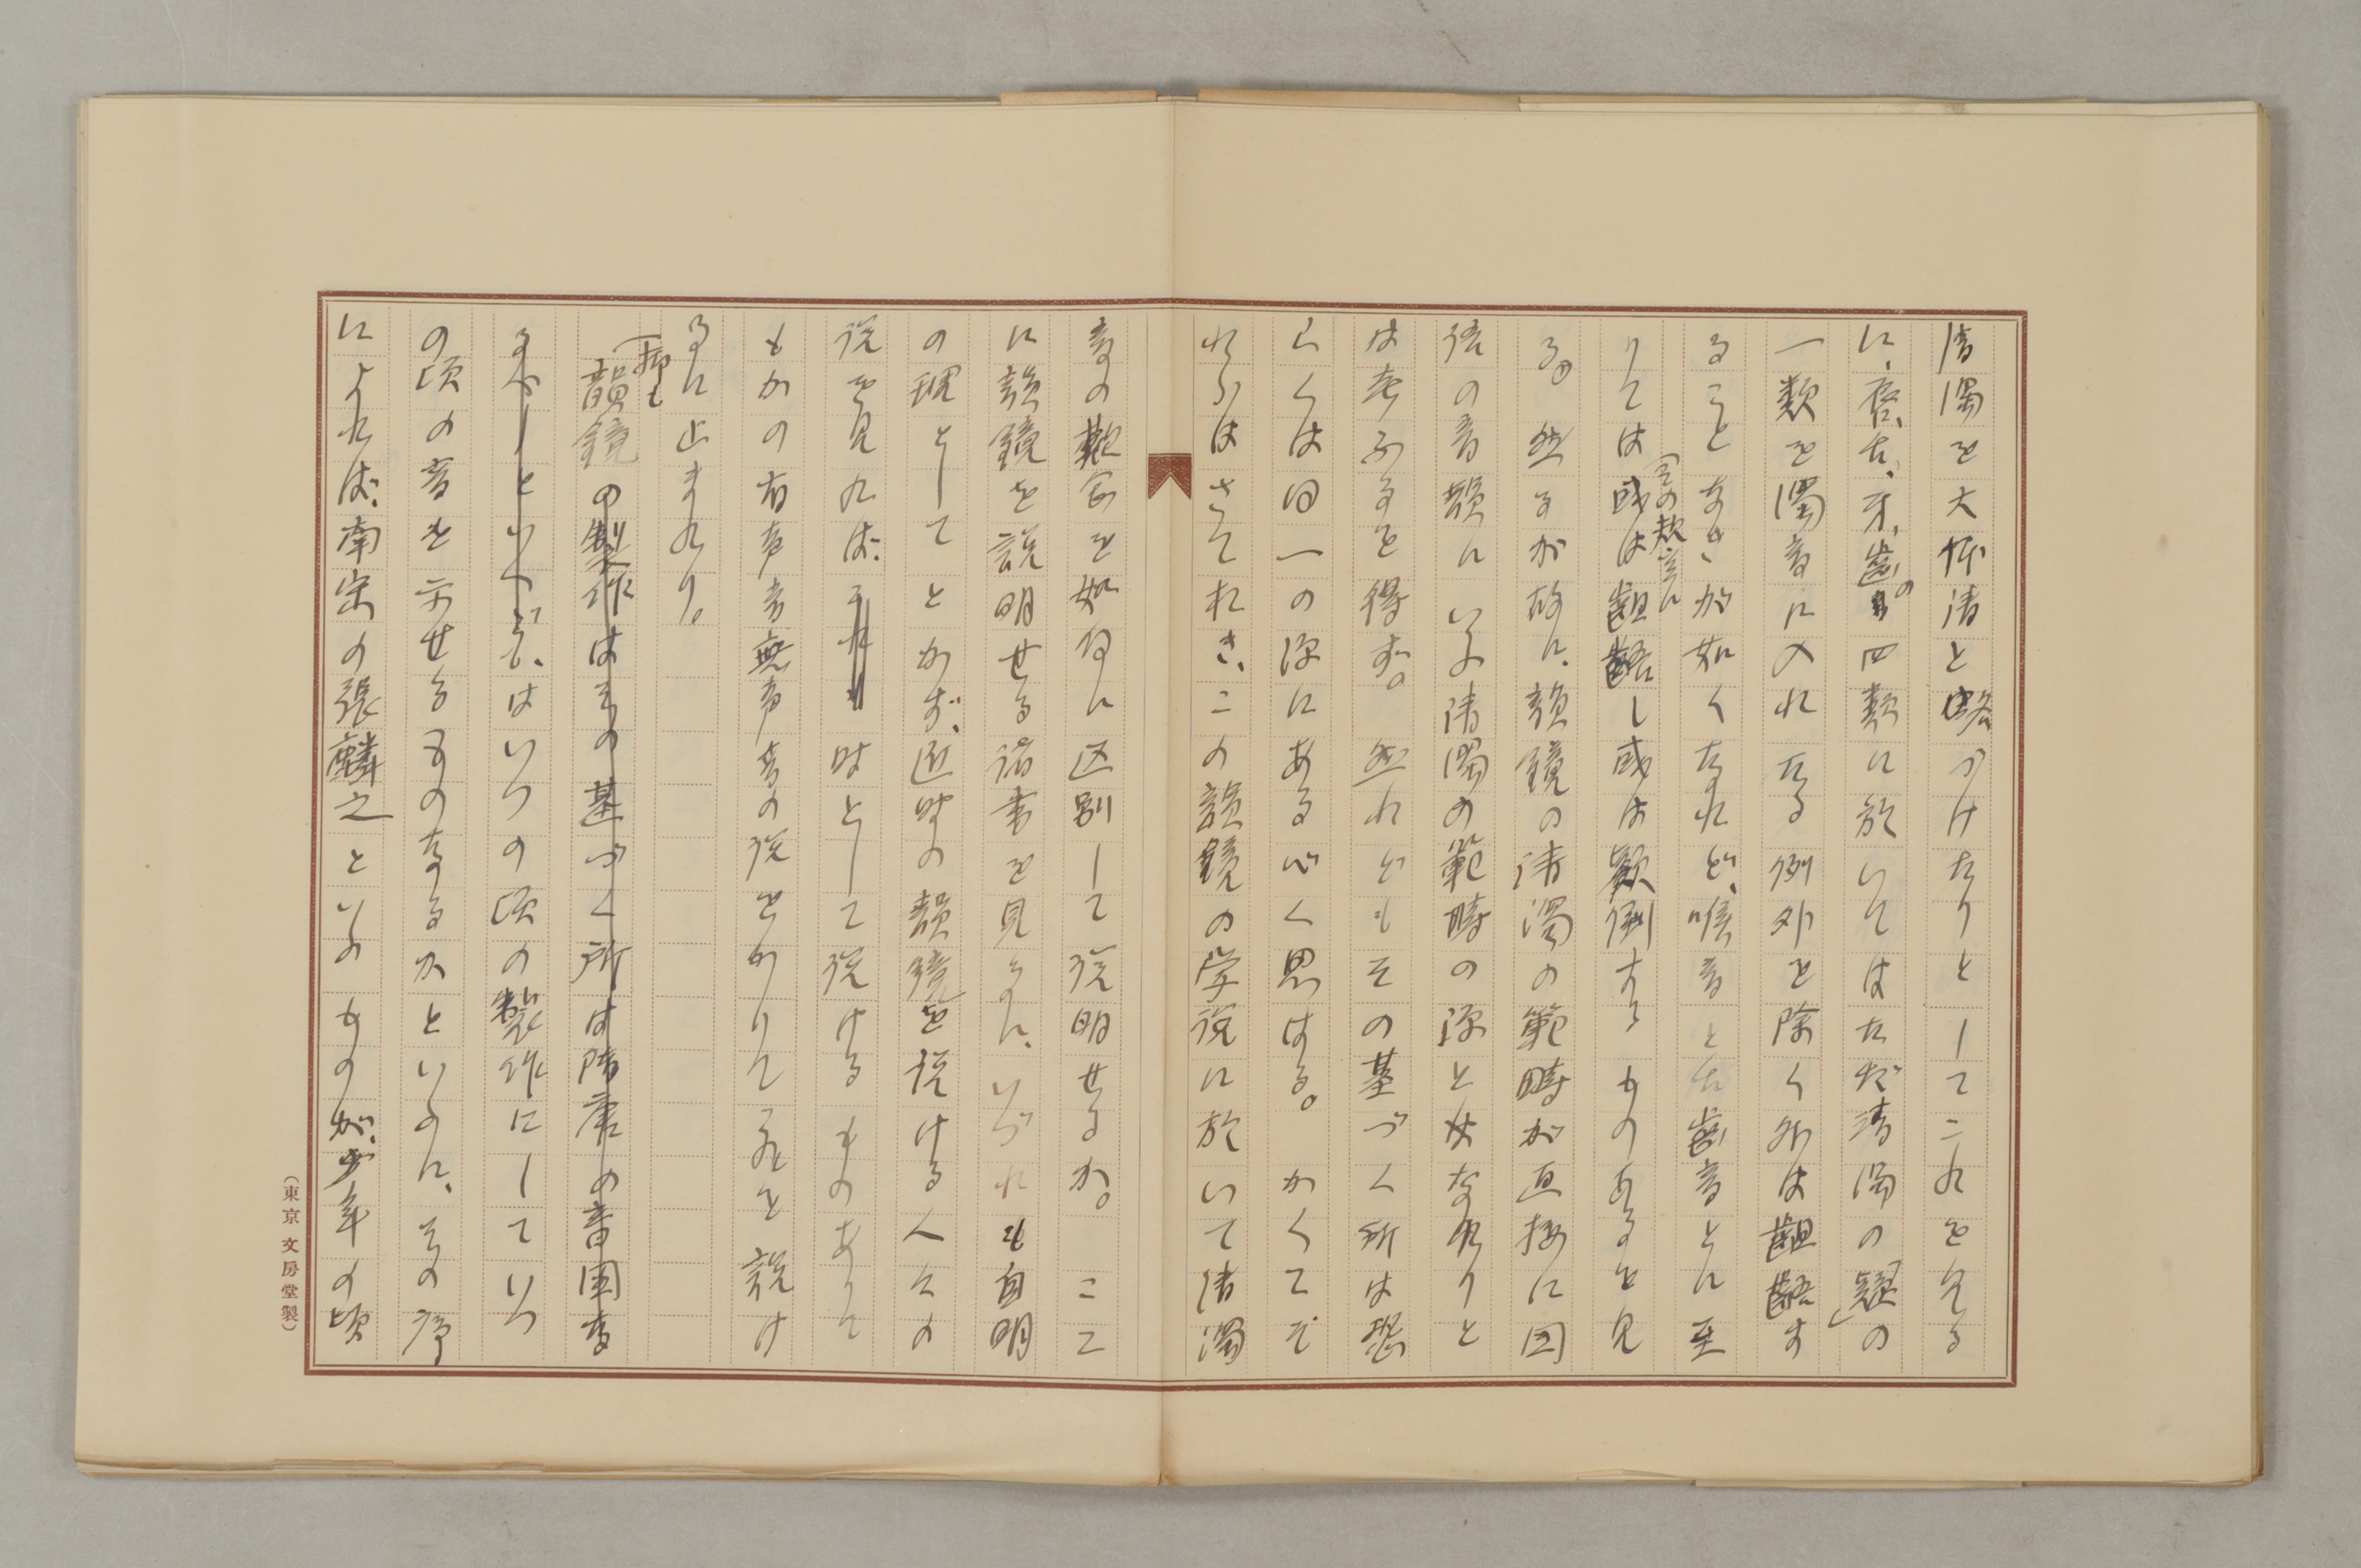 清濁を大体清と略づけたりとしてこれを見る
に、唇、舌、牙、歯の四類に於いてはただ清濁の「疑」の
一類を濁音に入れたる例外を除く外は齟齬す
ることなきが如くなれど、喉音と舌歯音とに至
りては或は齟齬し或は顛倒するものあるを見
る。然るが故に、韻鏡の清濁の範疇が直接に国
語の音韻にいふ清濁の範疇の源と女なりと
は考ふるを得ず。然れどもその基づく所は恐
らくは同一の源にあるべく思はる。かくてぞ
れらはさてれき、この韻鏡の学説に於いて清濁
音の観念を如何に区別して説明せるか。ここ
に韻鏡を説明せる諸書を見るに、いづれも自明
の理としてとかず、近時の韻鏡を説ける人々の
説を見れば、時として説けるものありて
もかの有声音無声音の説をかりてこれを説け
るに止まれり。
抑も
韻鏡の製作はその基づく所は隋唐の音図な
るべしといへど、はいつの頃の製作にしていつ
の頃の音を示せるものなるかといふに、その序
によれば、南宋の張麟之といふものが、少年の頃
（東京 文房堂製）